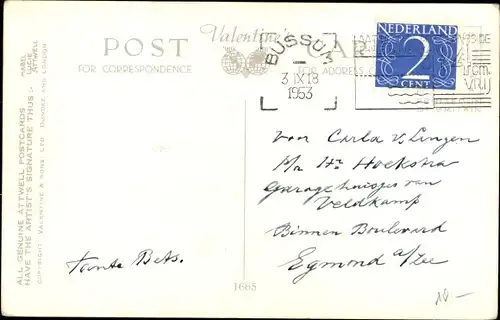 Valentine's
POST CARD
FOR CORRESPONDENCE
FOR ADDRESS
BUSSUM
3 IX 18
1953
NEDERLAND
2
CENT
VRIJ
MABEL
LUCIE
ATTWELL
ALL GENUINE ATTWELL POSTCARDS
HAVE THE ARTIST'S SIGNATURE THUS:-
COPYRIGHT VALENTINE & SONS LTD. DUNDEE AND LONDON
van Carla v. Lingen
p/a Hr Hoekstra
Garagehuisjes van
Veldkamp
Binnen Boulevard
Egmond a/zee
Tante Bets.
1665
10.-